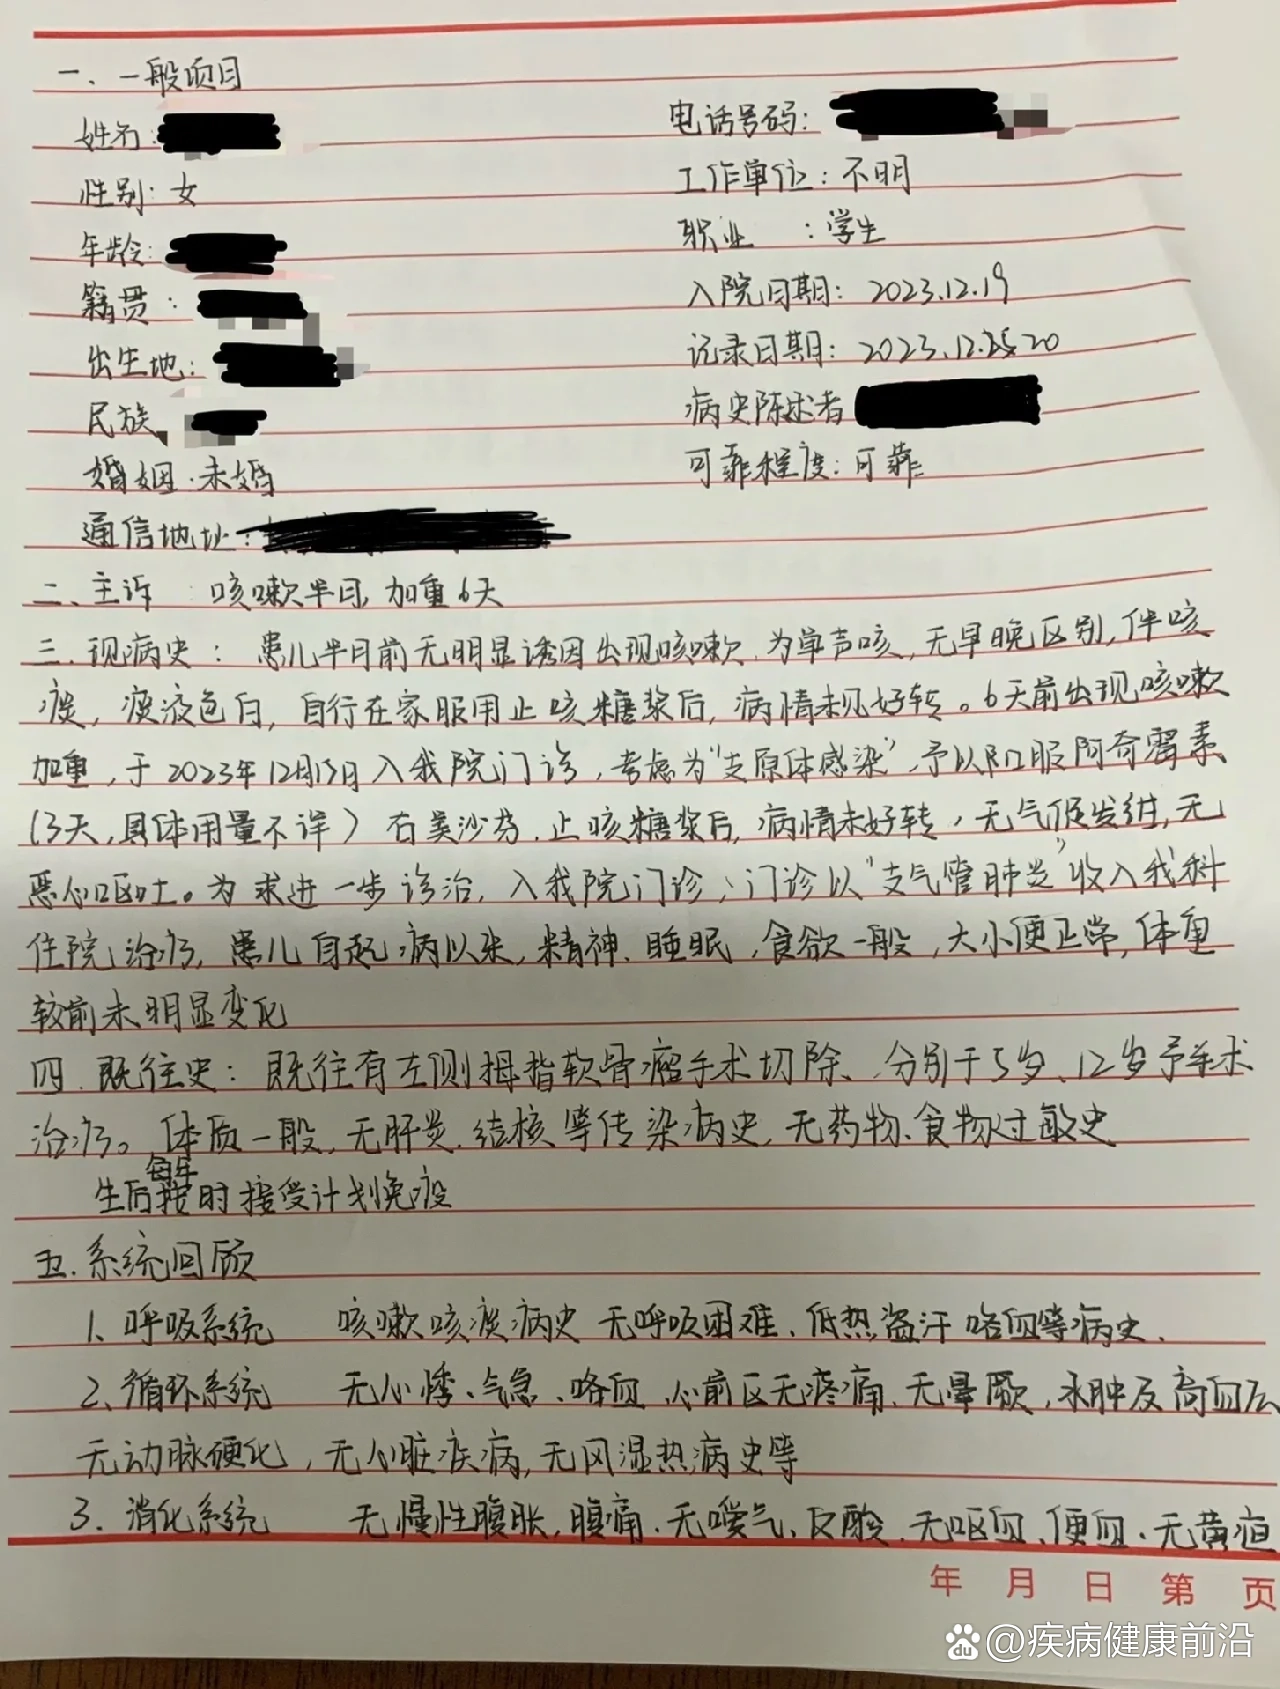 一、一般项目
姓名:
电话号码:
性别: 女
工作单位: 不明
年龄:
职业 : 学生
籍贯:
入院日期: 2023.12.19
出生地:
记录日期: 2023.12.20
民族
病史陈述者
婚姻·未婚
可靠程度: 可靠
通信地址:
二、主诉 咳嗽半月, 加重6天
三.现病史: 患儿半月前无明显诱因出现咳嗽, 为单声咳, 无早晚区别, 伴咳
痰, 痰液色白, 自行在家服用止咳糖浆后, 病情未见好转。6天前出现咳嗽
加重, 于2023年12月15日入我院门诊, 考虑为“支原体感染”, 予以口服阿奇霉素
(3天, 具体用量不详) 右美沙芬、止咳糖浆后, 病情未好转, 无气促发绀, 无
恶心呕吐。为求进一步诊治, 入我院门诊, 门诊以“支气管肺炎”收入我科
住院治疗, 患儿自起病以来, 精神、睡眠, 食欲一般, 大小便正常, 体重
较前未明显变化
四.既往史: 既往有左侧拇指软骨瘤手术切除、分别于5岁、12岁予手术
治疗。体质一般, 无肝炎.结核等传染病史, 无药物、食物过敏史
每年
生后按时接受计划免疫
五.系统回顾
1、呼吸系统 咳嗽咳痰病史 无呼吸困难、低热盗汗 咯血等病史.
2、循环系统 无心悸、气急、咯血、心前区无疼痛、无晕厥, 水肿及高血压
无动脉硬化, 无心脏疾病, 无风湿热病史等
3. 消化系统 无慢性腹胀, 腹痛. 无嗳气、反酸、无呕血、便血、无黄疸
年 月 日 第 页
Baidu @疾病健康前沿